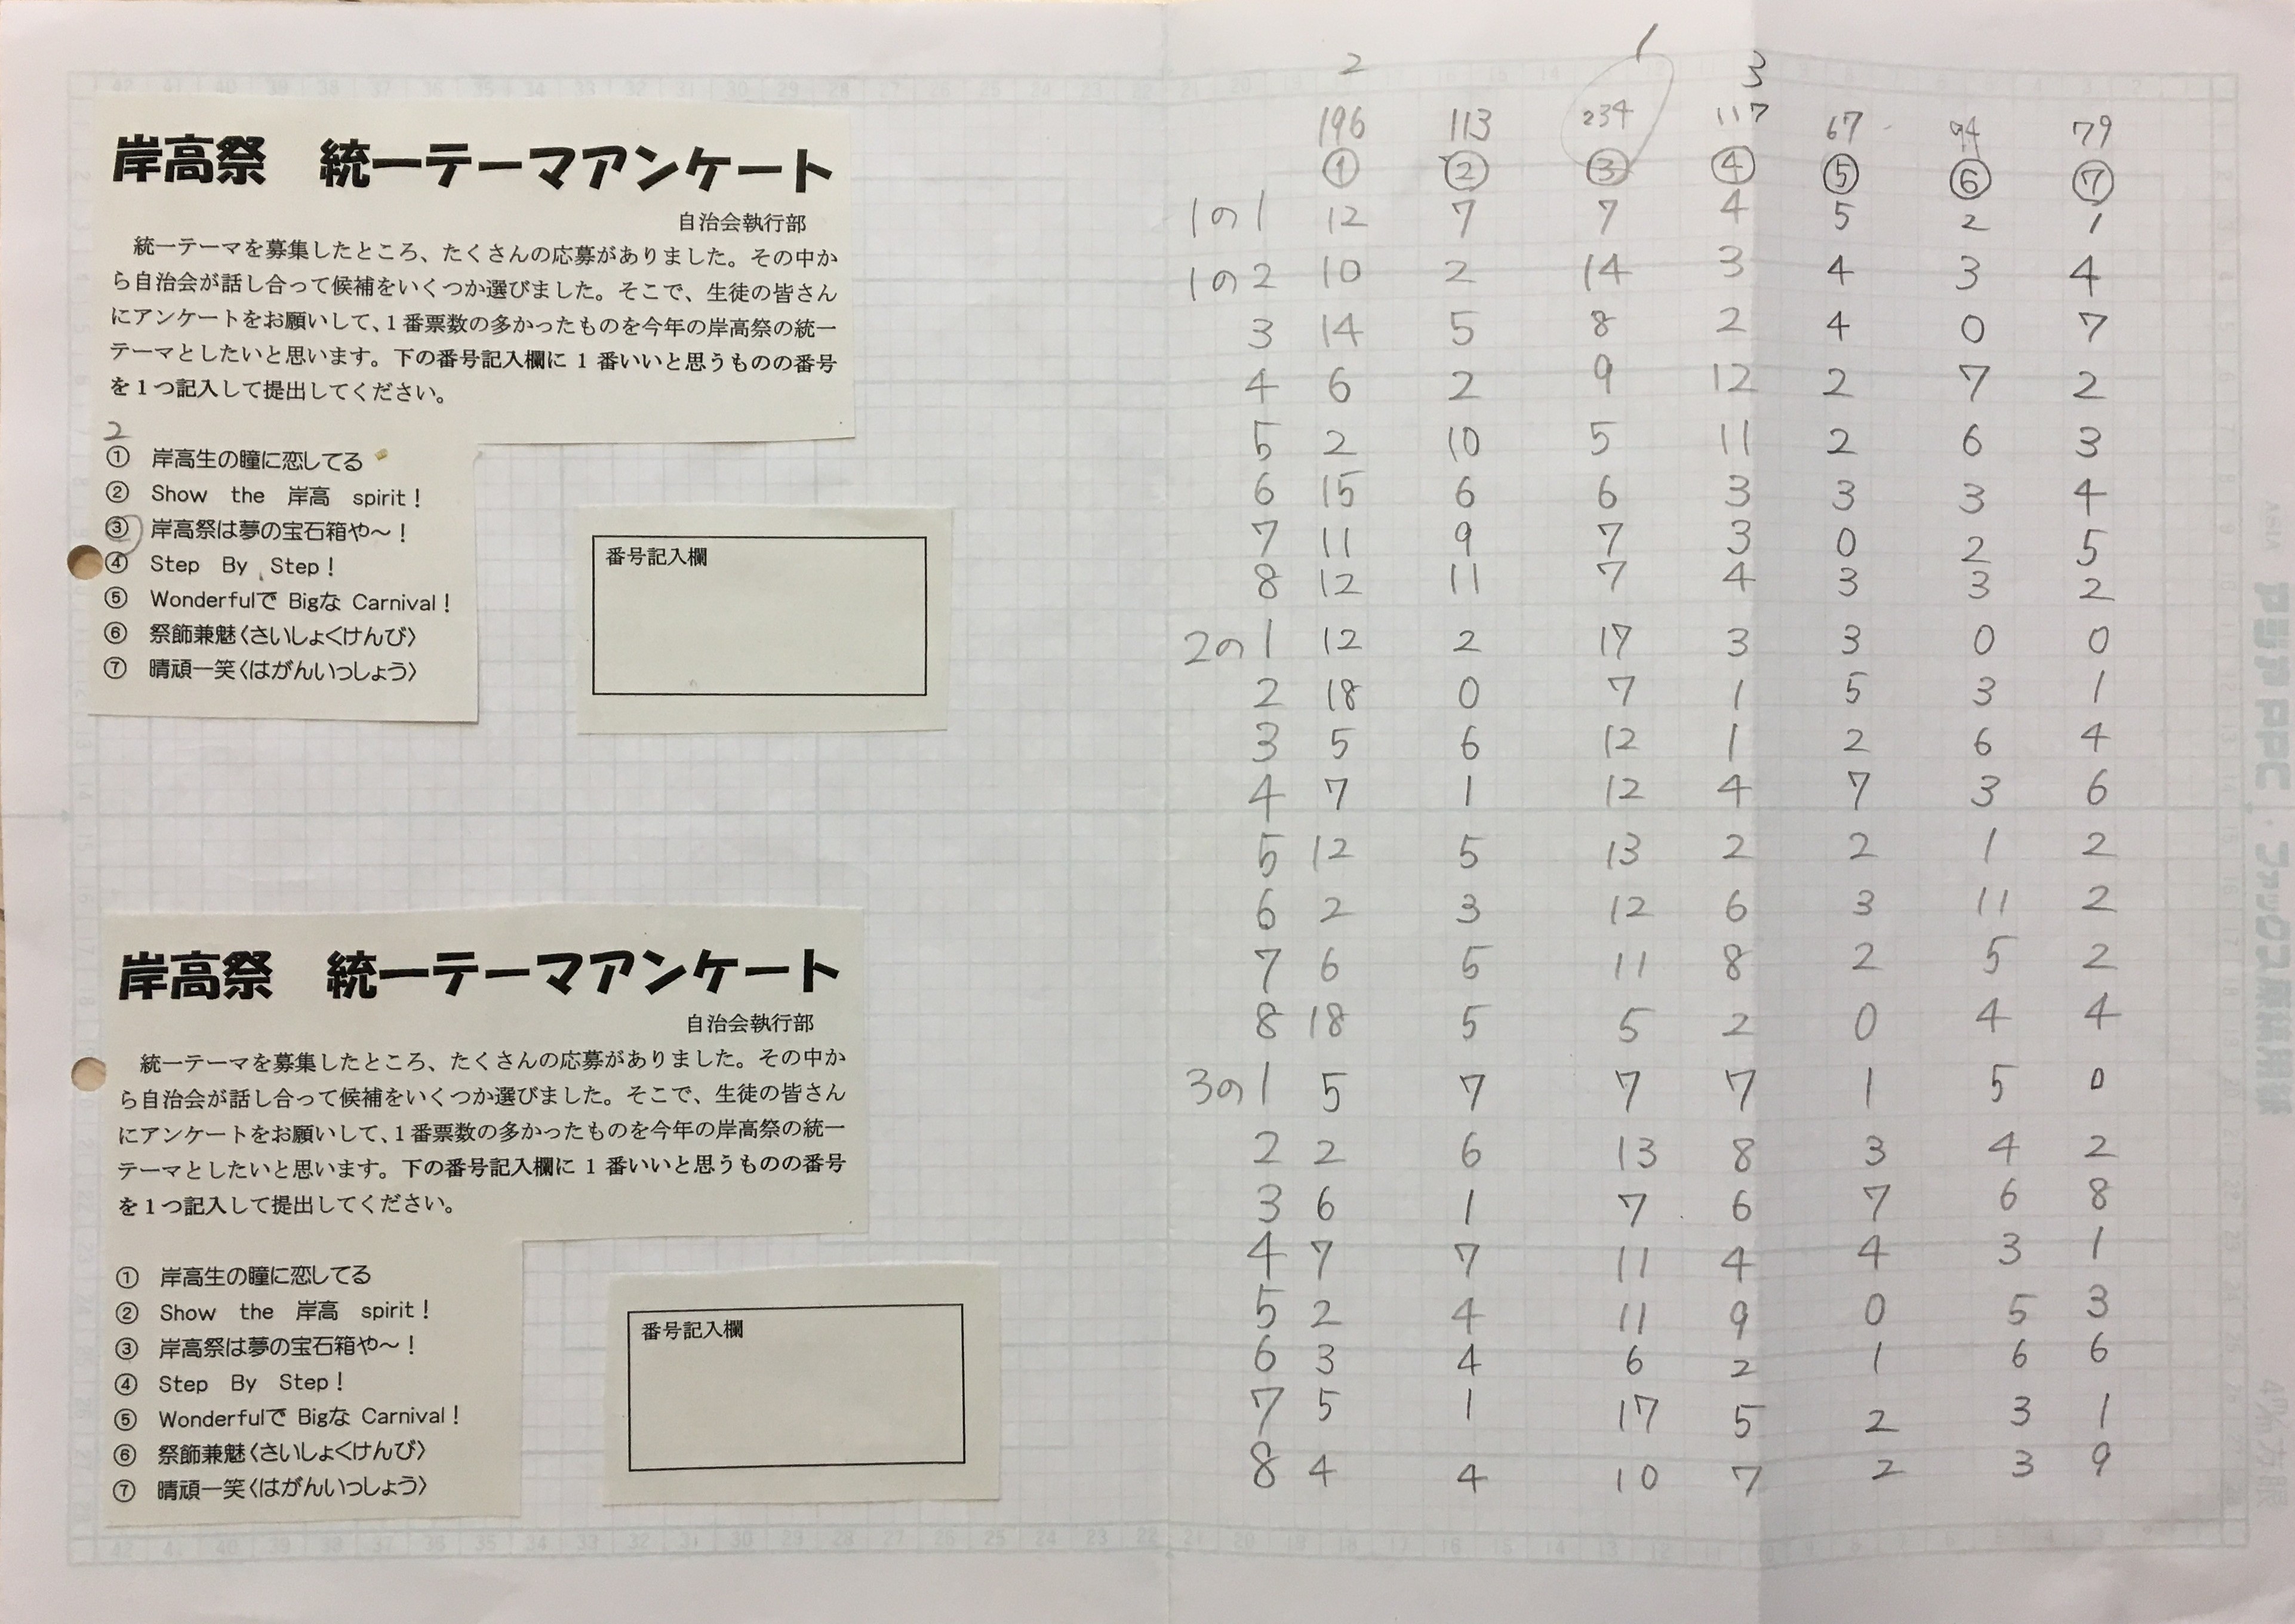 岸高祭　統一テーマアンケート
自治会執行部
統一テーマを募集したところ、たくさんの応募がありました。その中か
ら自治会が話し合って候補をいくつか選びました。そこで、生徒の皆さん
にアンケートをお願いして、1番票数の多かったものを今年の岸高祭の統一
テーマとしたいと思います。下の番号記入欄に 1 番いいと思うものの番号
を1つ記入して提出してください。
2
① 岸高生の瞳に恋してる
② Show the 岸高 spirit！
③ 岸高祭は夢の宝石箱や～！
④ Step By Step！
⑤ Wonderfulで Bigな Carnival！
⑥ 祭飾兼魅〈さいしょくけんび〉
⑦ 晴頑一笑〈はがんいっしょう〉
番号記入欄
岸高祭　統一テーマアンケート
自治会執行部
統一テーマを募集したところ、たくさんの応募がありました。その中か
ら自治会が話し合って候補をいくつか選びました。そこで、生徒の皆さん
にアンケートをお願いして、1番票数の多かったものを今年の岸高祭の統一
テーマとしたいと思います。下の番号記入欄に 1 番いいと思うものの番号
を1つ記入して提出してください。
① 岸高生の瞳に恋してる
② Show the 岸高 spirit！
③ 岸高祭は夢の宝石箱や～！
④ Step By Step！
⑤ Wonderfulで Bigな Carnival！
⑥ 祭飾兼魅〈さいしょくけんび〉
⑦ 晴頑一笑〈はがんいっしょう〉
番号記入欄
2 1 3
196 113 234 117 67 94 79
① ② ③ ④ ⑤ ⑥ ⑦
1の1 12 7 7 4 5 2 1
1の2 10 2 14 3 4 3 4
3 14 5 8 2 4 0 7
4 6 2 9 12 2 7 2
5 2 10 5 11 2 6 3
6 15 6 6 3 3 3 4
7 11 9 7 3 0 2 5
8 12 11 7 4 3 3 2
2の1 12 2 17 3 3 0 0
2 18 0 7 1 5 3 1
3 5 6 12 1 2 6 4
4 7 1 12 4 7 3 6
5 12 5 13 2 2 1 2
6 2 3 12 6 3 11 2
7 6 5 11 8 2 5 2
8 18 5 5 2 0 4 4
3の1 5 7 7 7 1 5 0
2 2 6 13 8 3 4 2
3 6 1 7 6 7 6 8
4 7 7 11 4 4 3 1
5 2 4 11 9 0 5 3
6 3 4 6 2 1 6 6
7 5 1 17 5 2 3 1
8 4 4 10 7 2 3 9